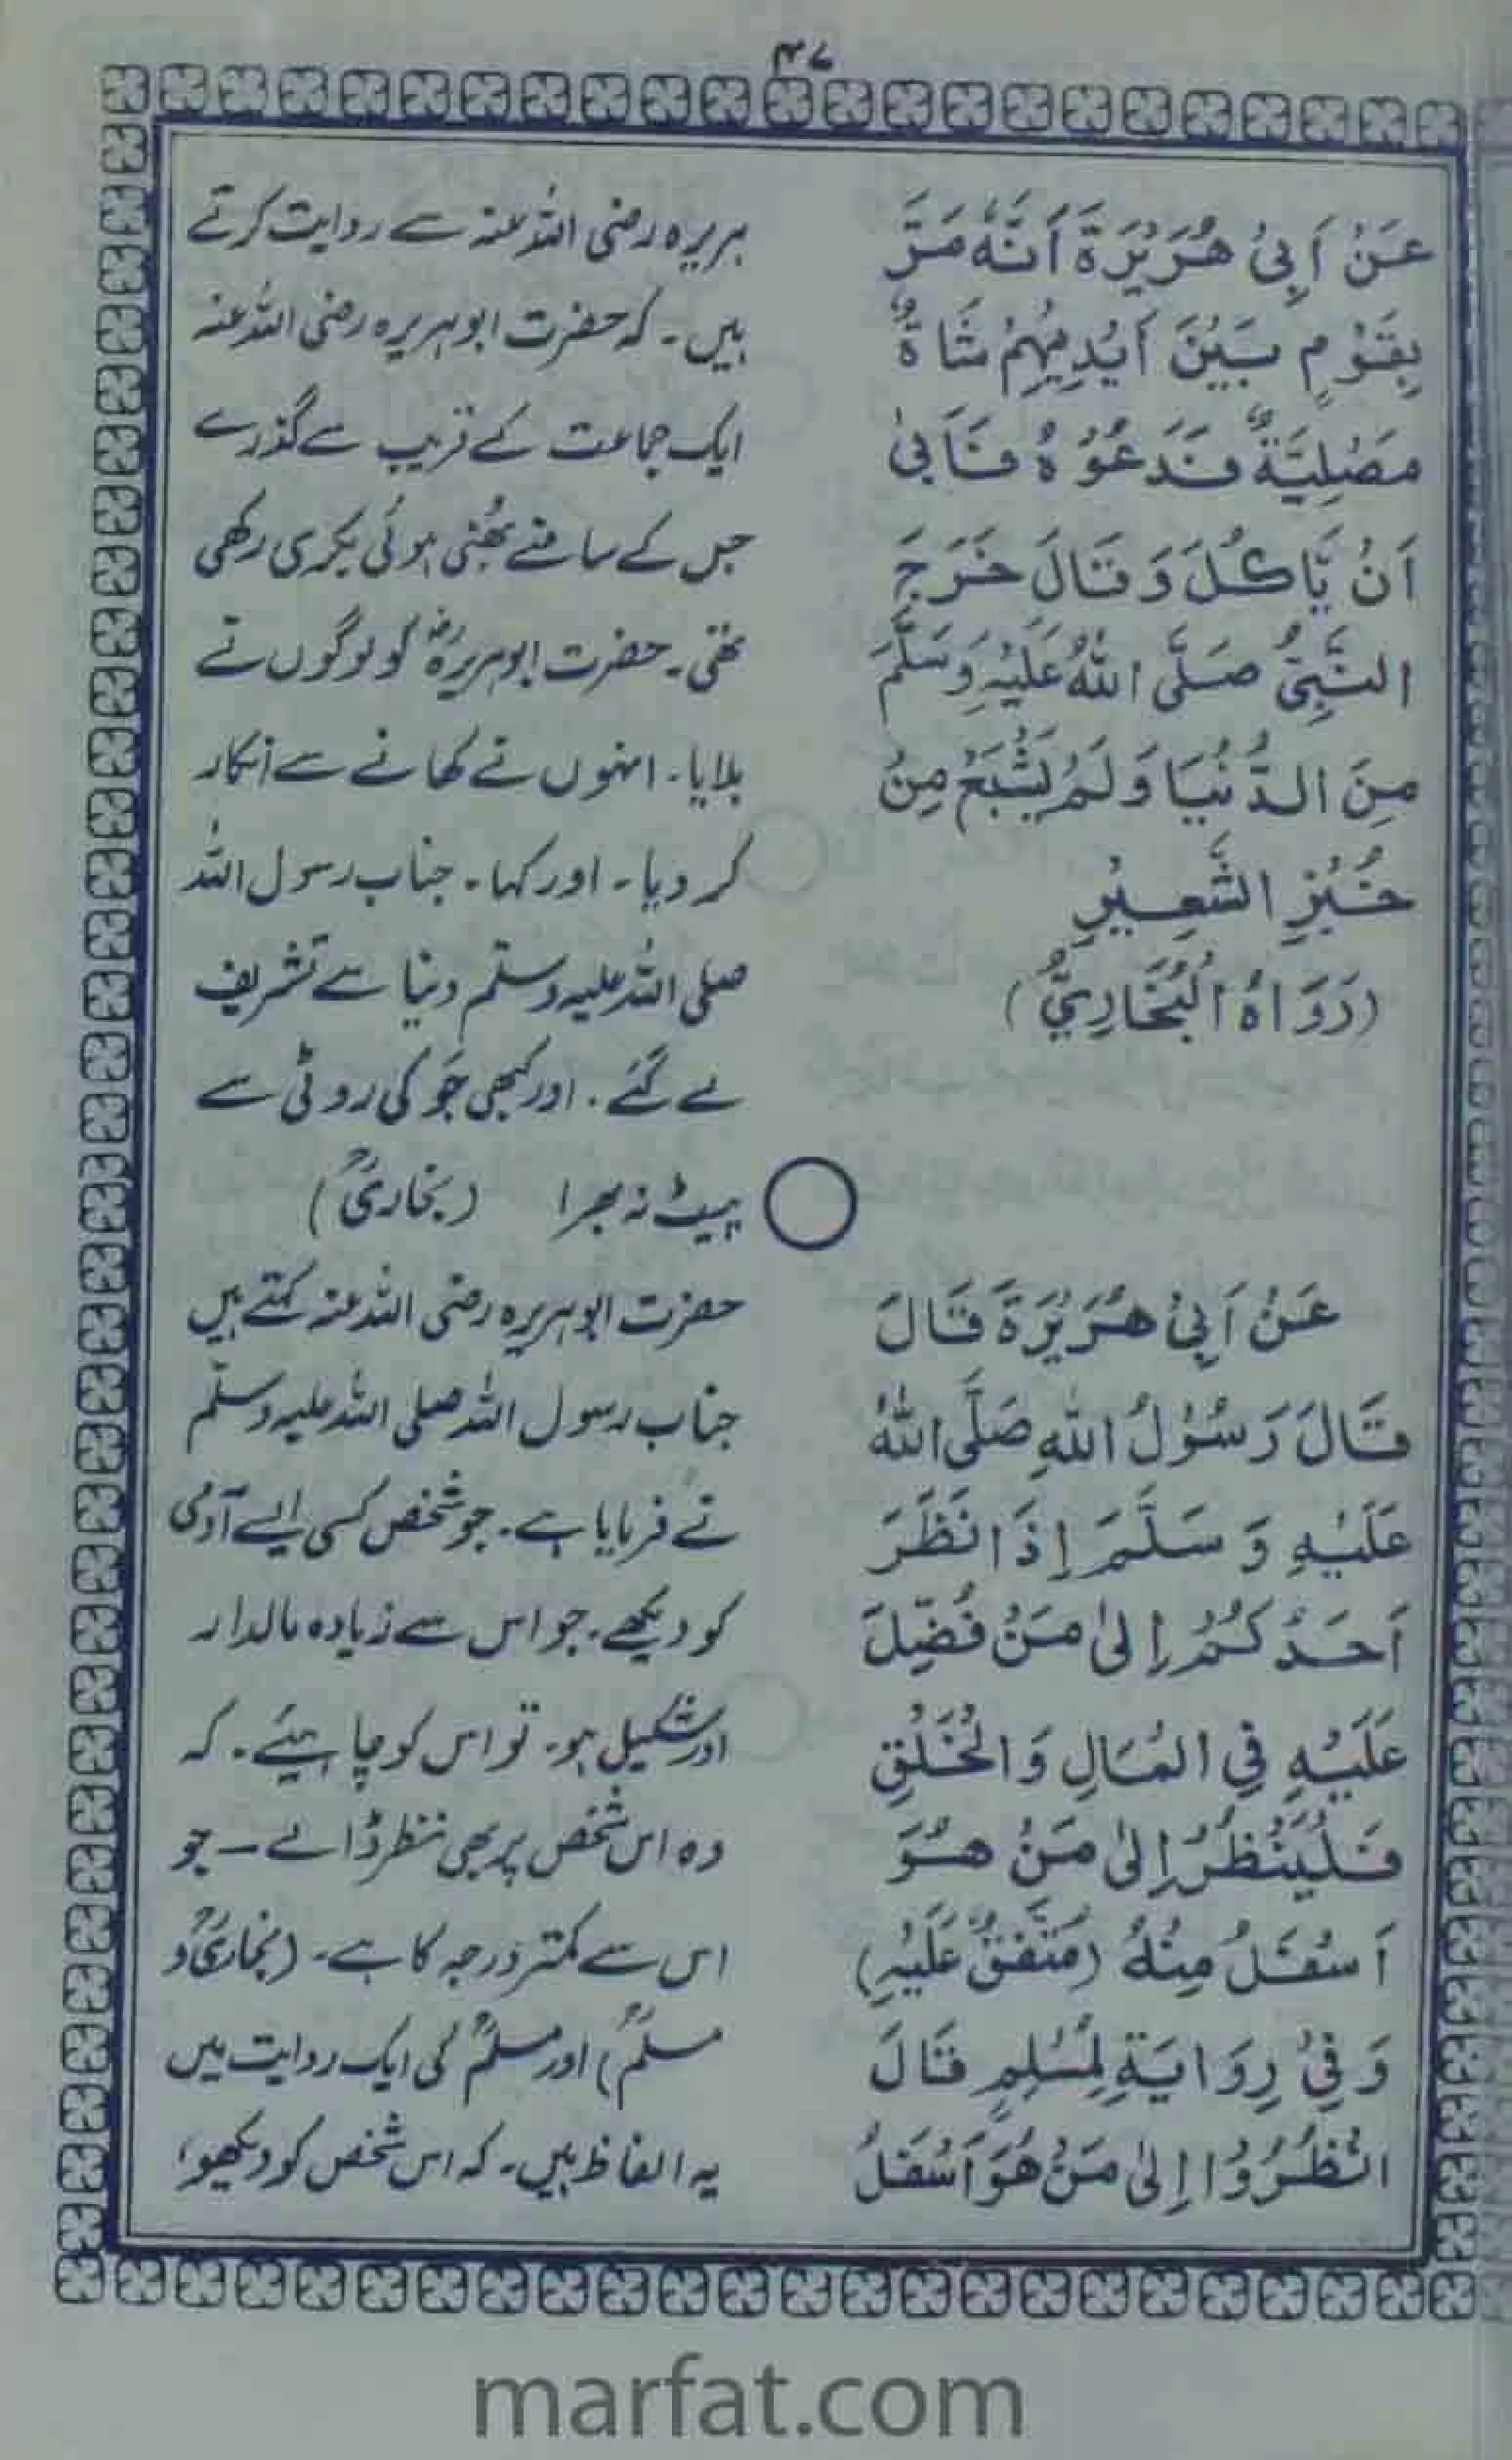 ۳۷
عَنْ اَبِیْ هُرَیْرَةَ اَنَّهٗ مَرَّ
بِقَوْمٍ بَیْنَ اَیْدِیْهِمْ شَاةٌ
مَصْلِیَّةٌ فَدَعَوْهُ فَاَبٰی
اَنْ یَّاْکُلَ وَقَالَ خَرَجَ
النَّبِیُّ صَلَّی اللّٰهُ عَلَیْهِ وَسَلَّمَ
مِنَ الدُّنْیَا وَلَمْ یَشْبَعْ مِنْ
خُبْزِ الشَّعِیْرِ
(رَوَاهُ الْبُخَارِیُّ)
ہریرہ رضی اللہ عنہ سے روایت کرتے
ہیں۔ کہ حضرت ابوہریرہ رضی اللہ عنہ
ایک جماعت کے قریب سے گذرے
جس کے سامنے بھُنی ہوئی بکری رکھی
تھی۔ حضرت ابوہریرہؓ کو لوگوں نے
بلایا۔ انہوں نے کھانے سے انکار
کر دیا۔ اور کہا۔ جناب رسول اللہ
صلی اللہ علیہ وسلم دنیا سے تشریف
لے گئے۔ اور کبھی جَو کی روٹی سے
پیٹ نہ بھرا (بخاریؒ)
عَنْ اَبِیْ هُرَیْرَةَ قَالَ
قَالَ رَسُوْلُ اللّٰهِ صَلَّی اللّٰهُ
عَلَیْهِ وَسَلَّمَ اِذَا نَظَرَ
اَحَدُکُمْ اِلٰی مَنْ فُضِّلَ
عَلَیْهِ فِی الْمَالِ وَالْخَلْقِ
فَلْیَنْظُرْ اِلٰی مَنْ هُوَ
اَسْفَلُ مِنْهُ (مُتَّفَقٌ عَلَیْهِ)
وَفِیْ رِوَایَةٍ لِمُسْلِمٍ قَالَ
انْظُرُوْا اِلٰی مَنْ هُوَ اَسْفَلُ
حضرت ابوہریرہ رضی اللہ عنہ کہتے ہیں
جناب رسول اللہ صلی اللہ علیہ وسلم
نے فرمایا ہے۔ جو شخص کسی ایسے آدمی
کو دیکھے۔ جو اس سے زیادہ مالدار
اور شکیل ہو۔ تو اس کو چاہیئے۔ کہ
وہ اس شخص پر بھی نظر ڈالے — جو
اس سے کمتر درجہ کا ہے۔ (بخاریؒ و
مسلمؒ) اور مسلمؒ کی ایک روایت میں
یہ الفاظ ہیں۔ کہ اس شخص کو دیکھو،
marfat.com